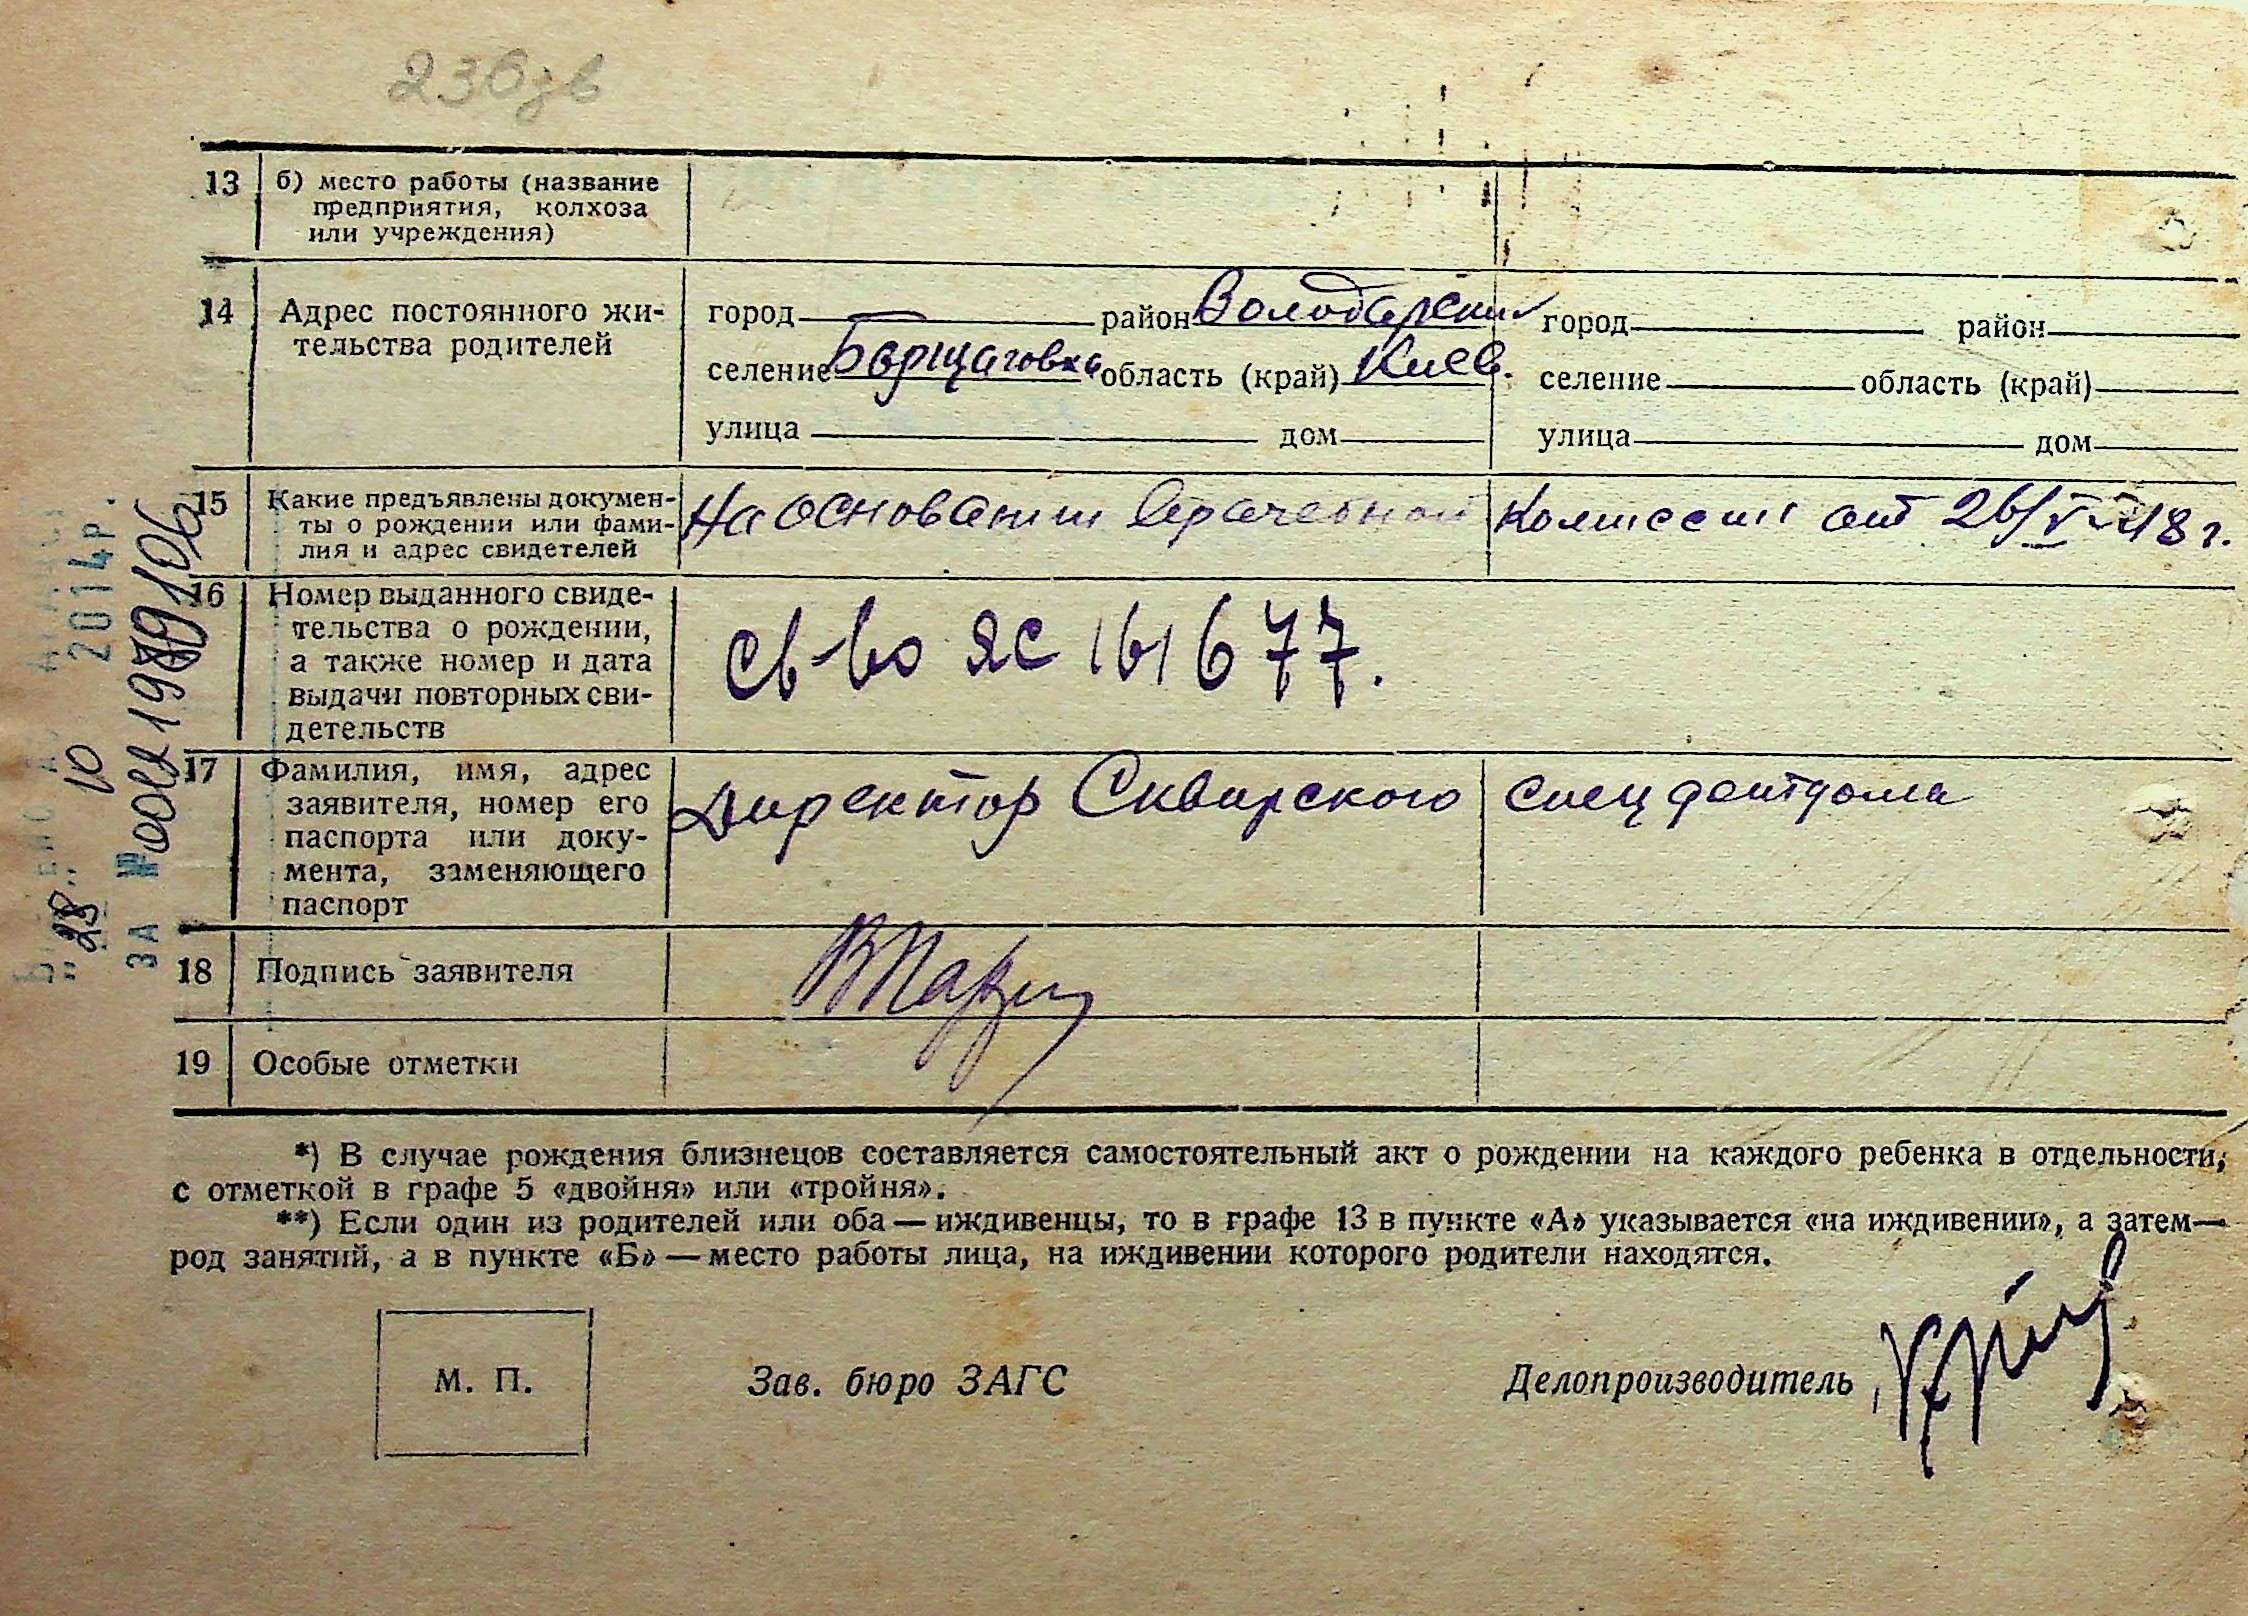 13 б) место работы (название
предприятия, колхоза
или учреждения)
14 Адрес постоянного жи-
тельства родителей
город район Володарский город район
селение Борщаговка область (край) Киев. селение область (край)
улица дом улица дом
15 Какие предъявлены докумен-
ты о рождении или фами-
лия и адрес свидетелей
На основании врачебной комиссии от 26/V-48 г.
16 Номер выданного свиде-
тельства о рождении,
а также номер и дата
выдачи повторных сви-
детельств
св-во ЯС 161677.
17 Фамилия, имя, адрес
заявителя, номер его
паспорта или доку-
мента, заменяющего
паспорт
Директор Сквирского спец детдома
18 Подпись заявителя
19 Особые отметки
*) В случае рождения близнецов составляется самостоятельный акт о рождении на каждого ребенка в отдельности,
с отметкой в графе 5 «двойня» или «тройня».
**) Если один из родителей или оба — иждивенцы, то в графе 13 в пункте «А» указывается «на иждивении», а затем—
род занятий, а в пункте «Б» — место работы лица, на иждивении которого родители находятся.
М. П. Зав. бюро ЗАГС Делопроизводитель
"28" 10 2014р.
ЗА №